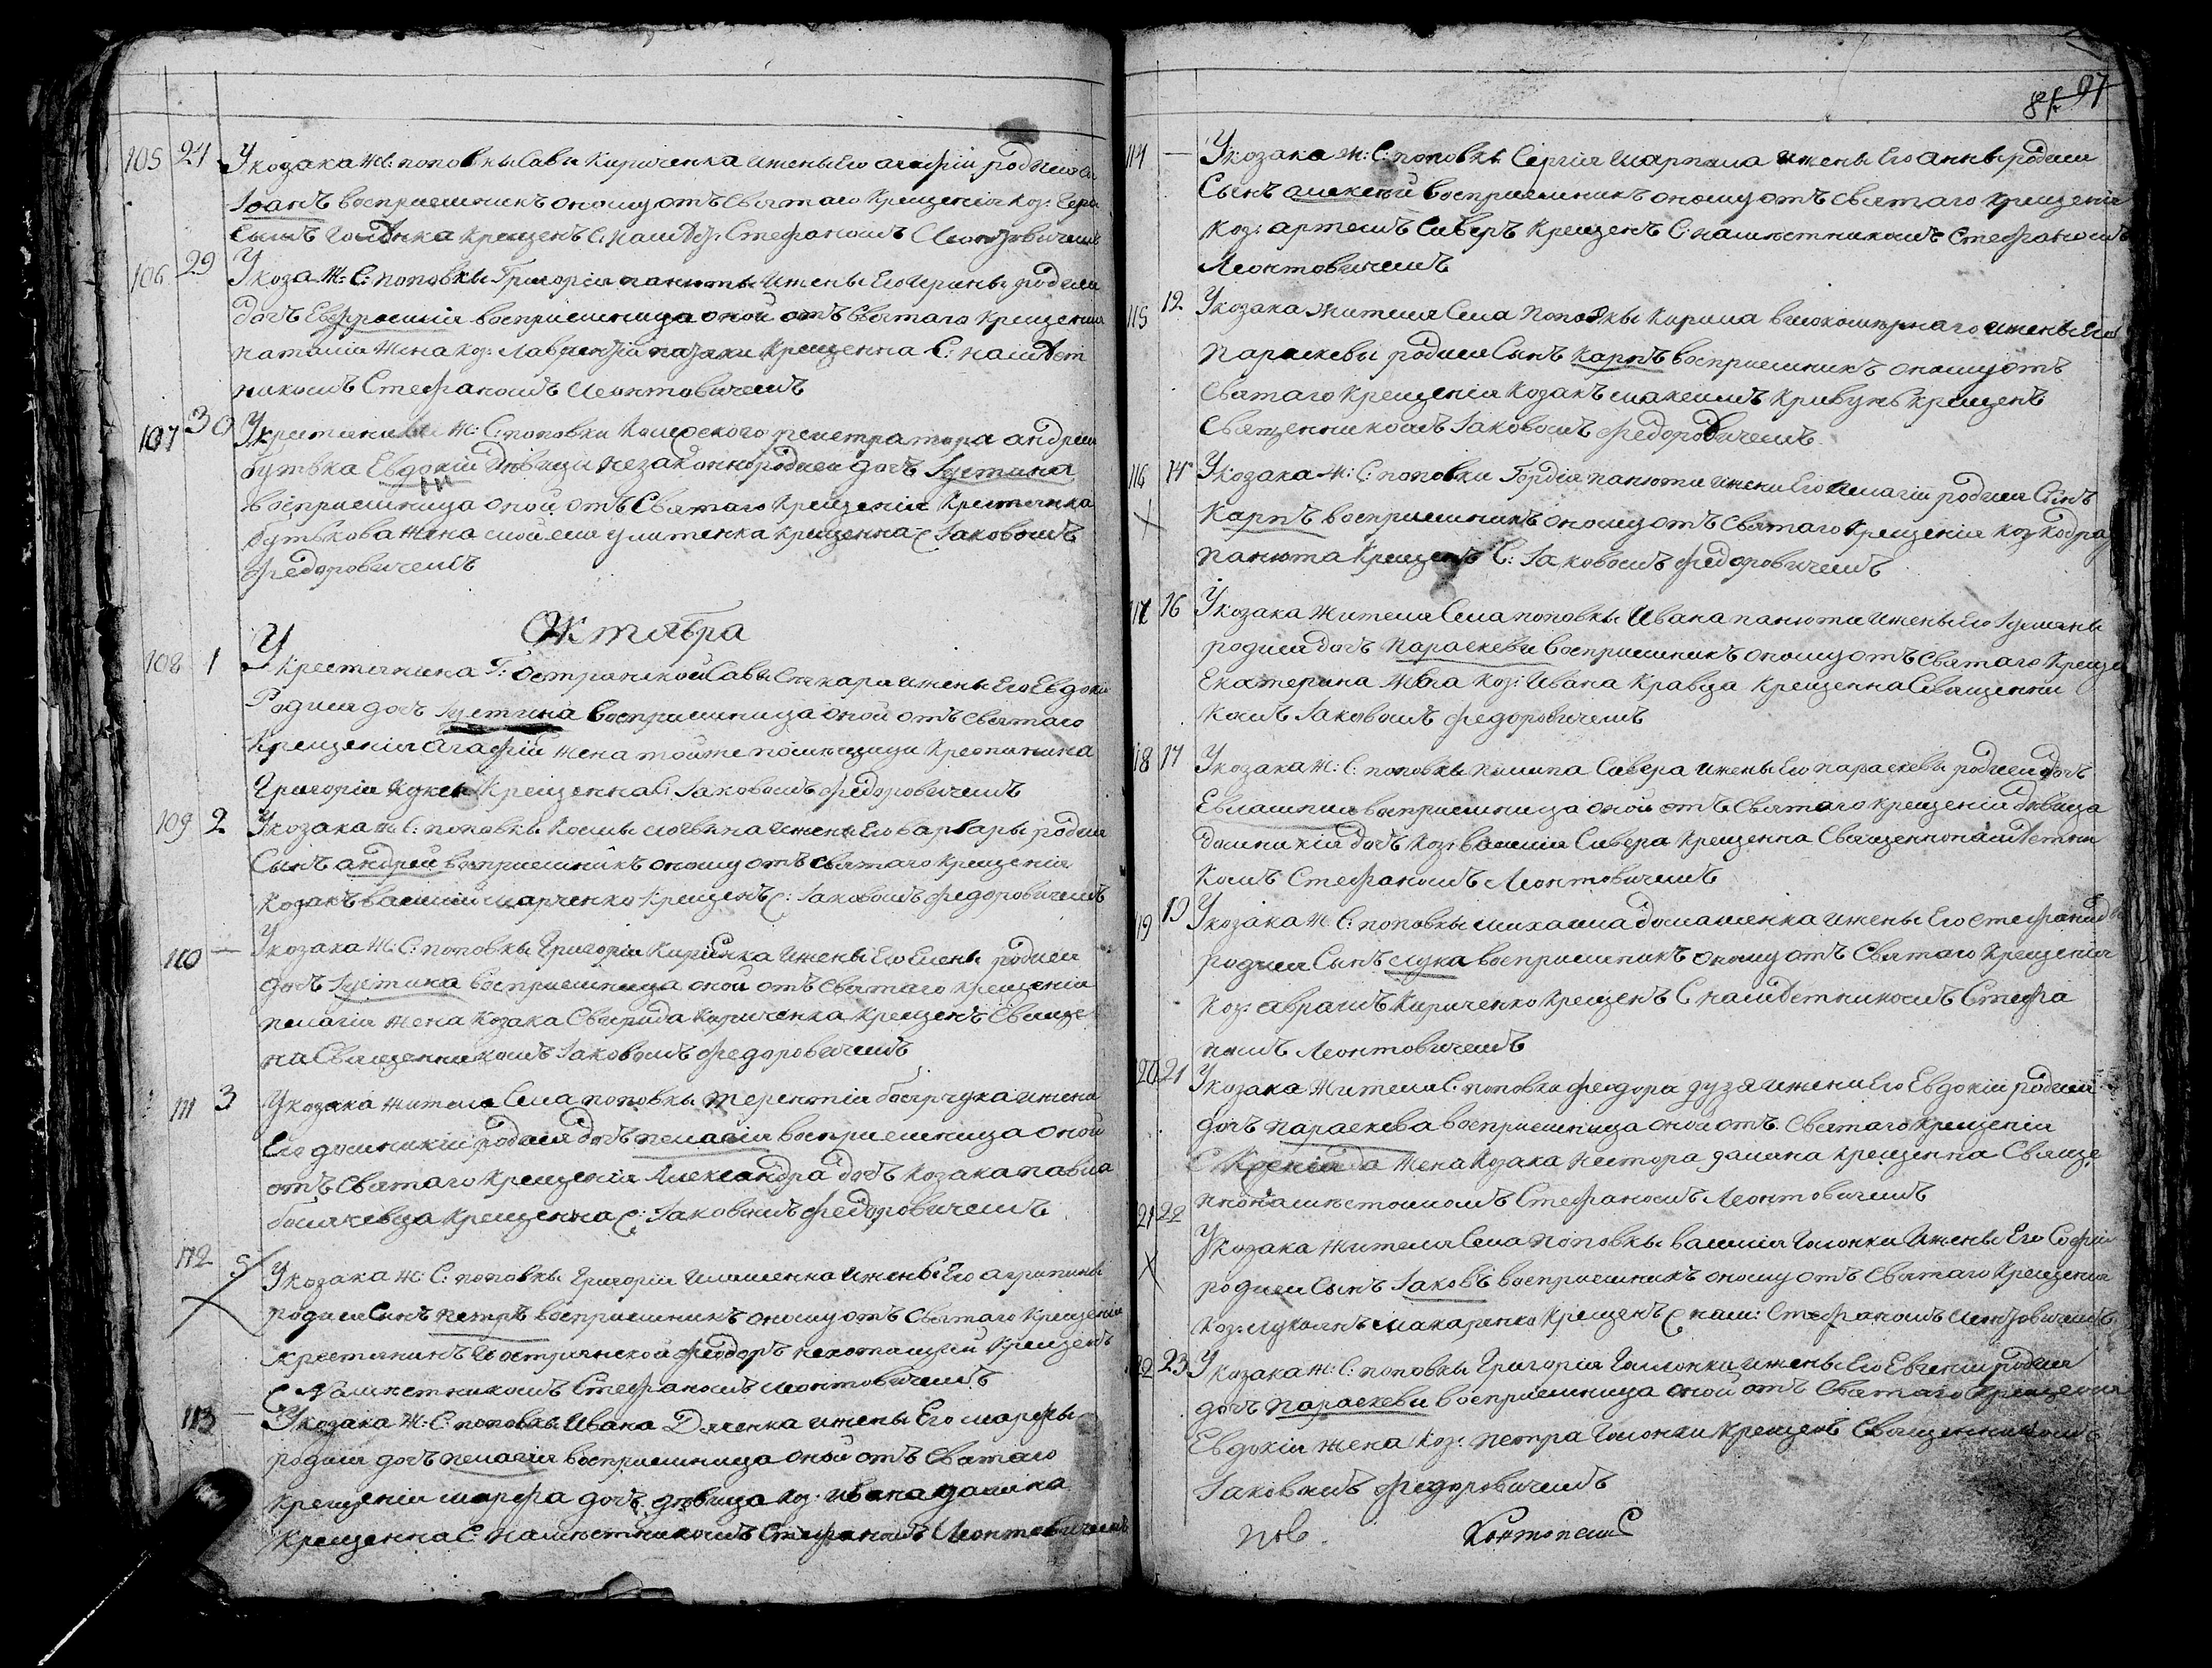 105 24 У козака ж: с: поповки Сави Кириченка и жены его Агафiи родился
Iоанъ восприемникъ оному отъ святаго крещенiя коз: Гера
симъ крещенъ С: намѣс: Стефаномъ Леонтовичемъ
106 29 У коза ж: с: поповки Григорiя панюты и жены его Ирины родися
дочь Евфросинiя восприемница оной отъ святаго крещения
наталiя жена коз: Лаврентiя крещенна С: намѣст
никомъ Стефаномъ Леонтовичемъ
107 30 У крестянина ж: с: поповки регистратора андрея
бутвка Евдокiи дѣвици незаконнородися дочь Iустина
восприемница оной отъ святаго крещенiя крестянка
бутькова жена крещенна С Iаковомъ
Федоровичемъ
Октября
108 1 У крестянина Г: Остранской Савы и жены его Евдокiи
Родися дочь Iустина восприемница оной отъ святаго
крещенiя Агафiи жена тойже помѣщици
григорiя крещенна С: Iаковомъ Федоровичемъ
109 2 У козака ж: с: поповкы Космы и жены его варвары родися
сынъ андрей восприемникъ оному отъ святаго крещенiя
козакъ василiй марченко крещенъ С: Iаковомъ Федоровичемъ
110 — У козака ж: с: поповкы григорiя и жены его Елены родися
дочь Iустина восприемница оной отъ святаго крещенiя
пелагiя жена козака Свирида Кириченка крещенъ Свяще
на Священникомъ Iаковомъ Федоровичемъ
111 3 У козака жителя села поповкы терентiя и жены
его домникiи родися дочь пелагiя восприемница оной
отъ святаго крещенiя Александра дочь козака павла
крещенна С: Iаковомъ Федоровичемъ
112 5 У козака ж: с: поповкы григорiя и жены его агрипины
родися сынъ петръ восприемникъ оному отъ святаго крещенiя
крестянинъ Остранской Феодоръ крещенъ
С Намѣстникомъ Стефаномъ Леонтовичемъ
113 — У козака ж: с: поповкы Ивана и жены его марфы
родися дочь пелагiя восприемница оной отъ святаго
крещенiя марфа дочь дѣвица коз: ивана
крещенна С намѣстникомъ Стефаномъ Леонтовичемъ
97
114 — У козака ж: с: поповки Сергiя и жены его анны родися
сынъ алексѣй восприемникъ оному отъ святаго крещенiя
коз: артемъ Сиверъ крещенъ С: намѣстникомъ Стефаномъ
Леонтовичемъ
115 12 У козака жителя села поповкы Кирила и жены его
параскевы родися сынъ карпъ восприемникъ оному отъ
святаго крещенiя козакъ максимъ Кривунъ крещенъ
Священникомъ Iаковомъ Федоровичемъ
116 14 У козака ж: с: поповки Гордiя панюти и жени его пелагiи родися сынъ
карпъ восприемникъ оному отъ святаго крещенiя коз: кодра
панюта крещенъ С: Iаковомъ Федоровичемъ
117 16 У козака жителя села поповкы Ивана панюти и жены его
родися дочь параскеви восприемникъ оному отъ святаго креще
Екатерина жена коз: Ивана Кравца крещенна Священни
комъ Iаковомъ Федоровичемъ
118 17 У козака ж: с: поповкы пилипа Сивера и жены его параскевы родися дочь
Евлампия восприемница оной отъ святаго крещенiя дѣвица
домникiя дочь коз: василiя Сивера крещенна Священнонамѣстни
комъ Стефаномъ Леонтовичемъ
119 19 У козака ж: с: поповкы михаила домашенка и жены его стефанид
родися сынъ лука восприемникъ оному отъ святаго крещенiя
коз: аврамъ Кириченко крещенъ С намѣстникомъ Стефа
номъ Леонтовичемъ
120 21 У козака жителя с: поповки Феодора дузя и жени его Евдокiи родися
дочь параскева восприемница оной отъ святаго крещенiя
жена козака нестора крещенна Священ
Стефаномъ Леонтовичемъ
121 22 У козака жителя села поповкы василiя и жены его Софiи
родися сынъ Iаковъ восприемникъ оному отъ святаго крещения
коз: лукянъ макаренко крещенъ С нам: Стефаномъ Леонтовичемъ
122 23 У козака ж: с: поповкы григорiя и жены его Евгенiи родися
дочь параскеви восприемница оной отъ святаго крещения
Евдокiя жена коз: петра крещенъ Священникомъ
Iаковомъ Федоровичемъ